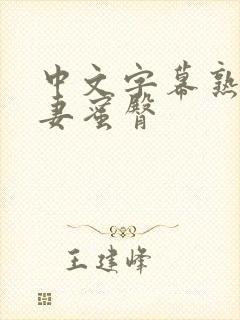 中文字幕熟
妻蜜臀
王建峰